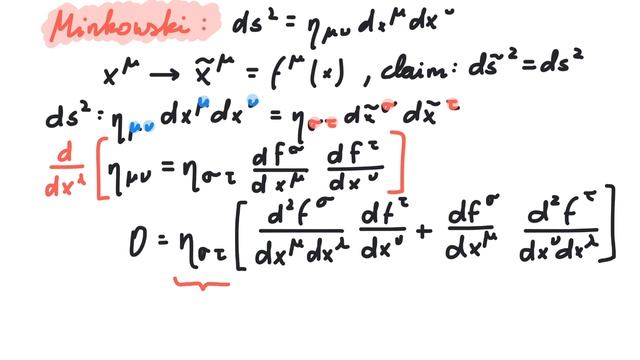 Minkowski: ds² = η_μν dx^μ dx^ν
x^μ → x̃^μ = f^μ(x), claim: ds̃² = ds²
ds²: η_μν dx^μ dx^ν = η_στ dx̃^σ dx̃^τ
d/dx^λ [η_μν = η_στ df^σ/dx^μ df^τ/dx^ν]
0 = η_στ [d²f^σ/dx^μdx^λ df^τ/dx^ν + df^σ/dx^μ d²f^τ/dx^νdx^λ]